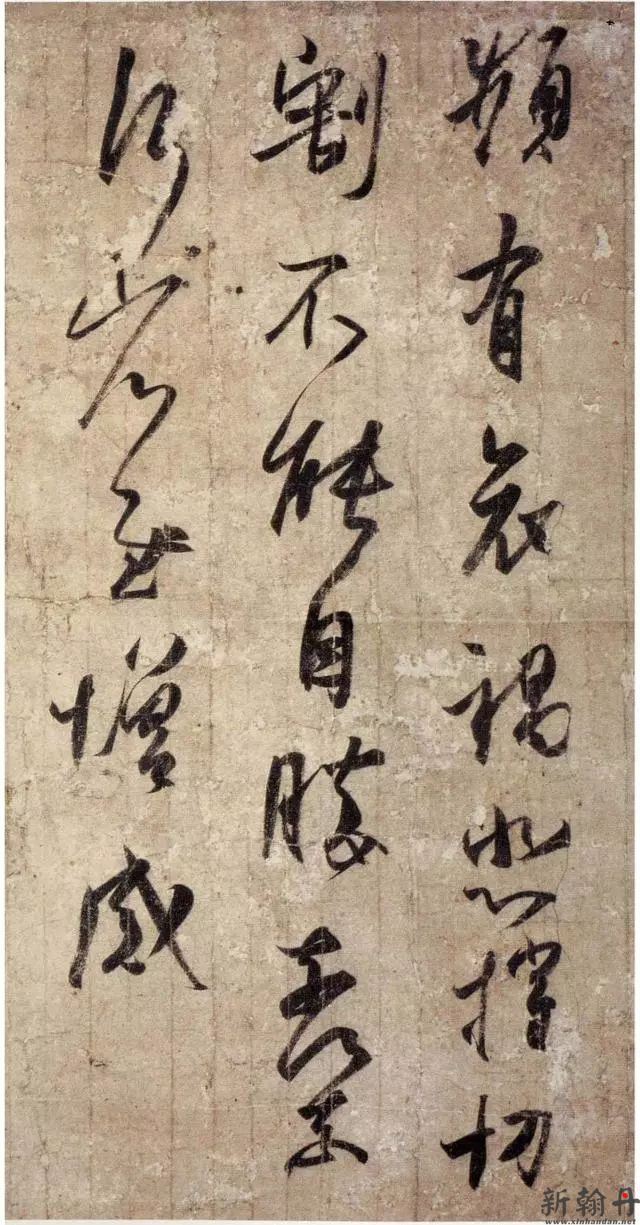 頻有哀禍悲摧切
割不能自勝奈何奈
何省慰增感
新翰丹
www.xinhandan.net